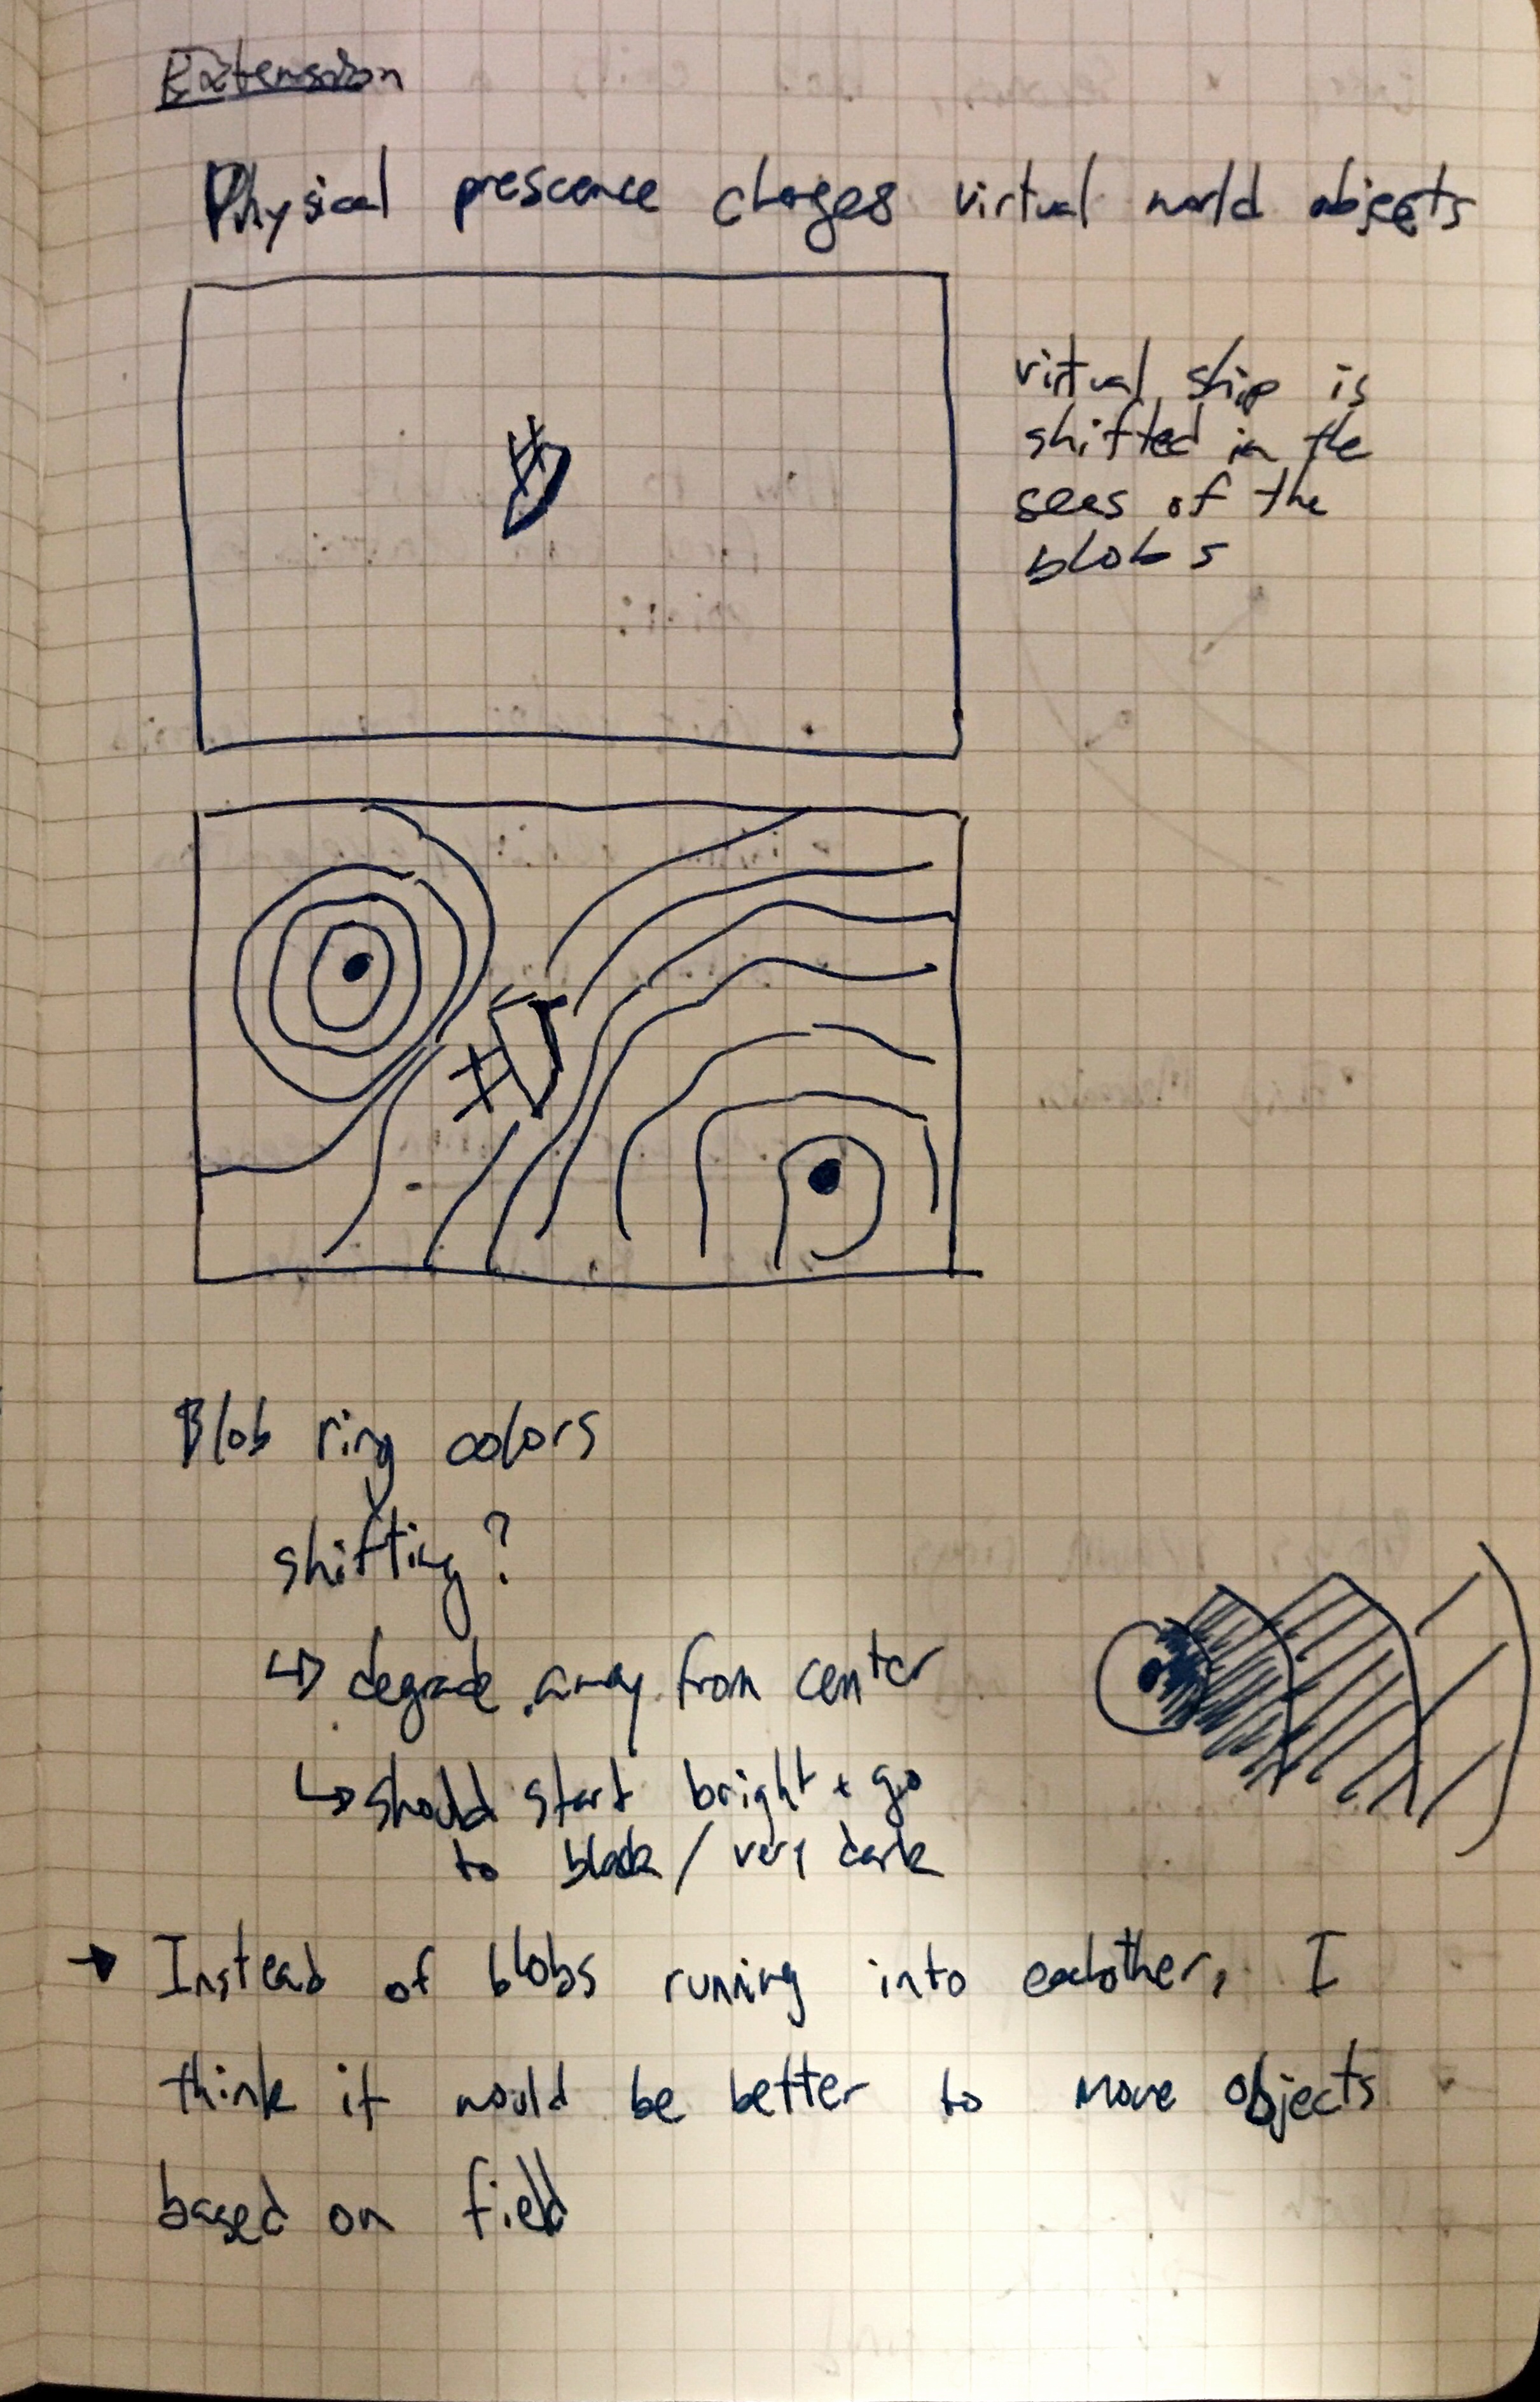 Extension
Physical prescence chages virtual world objects
virtual ship is
shifted in the
seas of the
blobs
Blob ring colors
shifting?
↳ degrade away from center
↳ should start bright + go
to black / very dark
→ Instead of blobs running into eachother, I
think it would be better to move objects
based on field